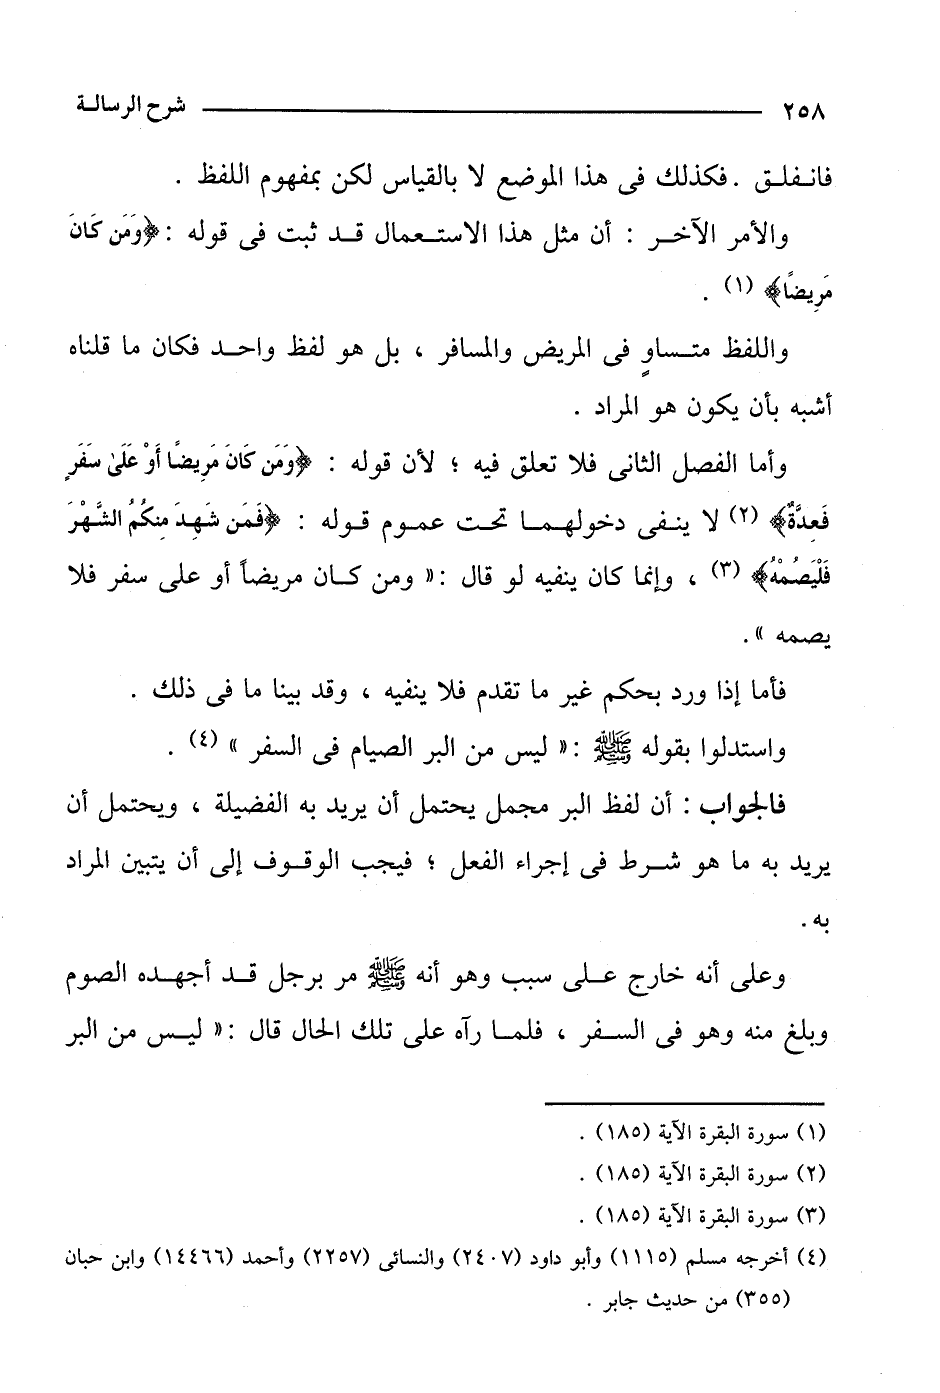 ٢٥٨ شرح الرسالة
فانفلق . فكذلك فى هذا الموضع لا بالقياس لكن بمفهوم اللفظ .
والأمر الآخر : أن مثل هذا الاستعمال قد ثبت فى قوله : ﴿وَمَن كَانَ
مَرِيضًا﴾ (١) .
واللفظ متساوٍ فى المريض والمسافر ، بل هو لفظ واحد فكان ما قلناه
أشبه بأن يكون هو المراد .
وأما الفصل الثانى فلا تعلق فيه ؛ لأن قوله : ﴿وَمَن كَانَ مَرِيضًا أَوْ عَلَىٰ سَفَرٍ
فَعِدَّةٌ﴾ (٢) لا ينفى دخولهما تحت عموم قوله : ﴿فَمَن شَهِدَ مِنكُمُ الشَّهْرَ
فَلْيَصُمْهُ﴾ (٣) ، وإنما كان ينفيه لو قال : « ومن كان مريضاً أو على سفر فلا
يصمه » .
فأما إذا ورد بحكم غير ما تقدم فلا ينفيه ، وقد بينا ما فى ذلك .
واستدلوا بقوله ﷺ : « ليس من البر الصيام فى السفر » (٤) .
فالجواب : أن لفظ البر مجمل يحتمل أن يريد به الفضيلة ، ويحتمل أن
يريد به ما هو شرط فى إجراء الفعل ؛ فيجب الوقوف إلى أن يتبين المراد
به .
وعلى أنه خارج على سبب وهو أنه ﷺ مر برجل قد أجهده الصوم
وبلغ منه وهو فى السفر ، فلما رآه على تلك الحال قال : « ليس من البر
(١) سورة البقرة الآية (١٨٥) .
(٢) سورة البقرة الآية (١٨٥) .
(٣) سورة البقرة الآية (١٨٥) .
(٤) أخرجه مسلم (١١١٥) وأبو داود (٢٤٠٧) والنسائى (٢٢٥٧) وأحمد (١٤٤٦٦) وابن حبان
(٣٥٥) من حديث جابر .